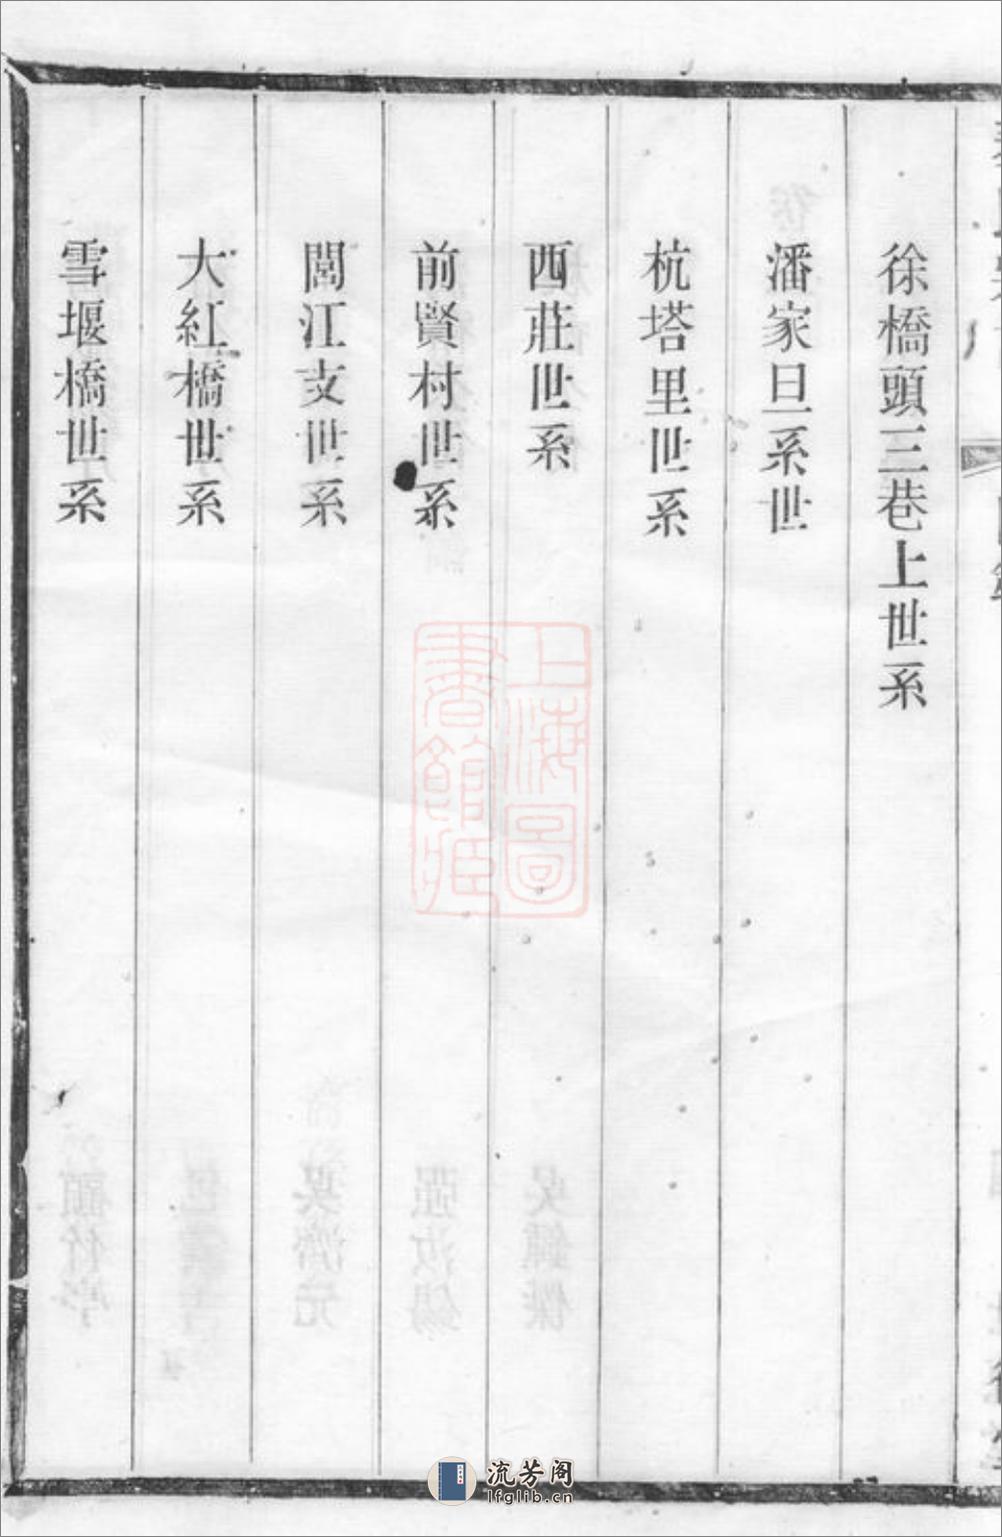 徐橋頭三巷上世系
潘家旦系世
杭塔里世系
西莊世系
前賢村世系
閭江支世系
大紅橋世系
雪堰橋世系
上海圖
書館藏
流芳阁
lfglib.cn